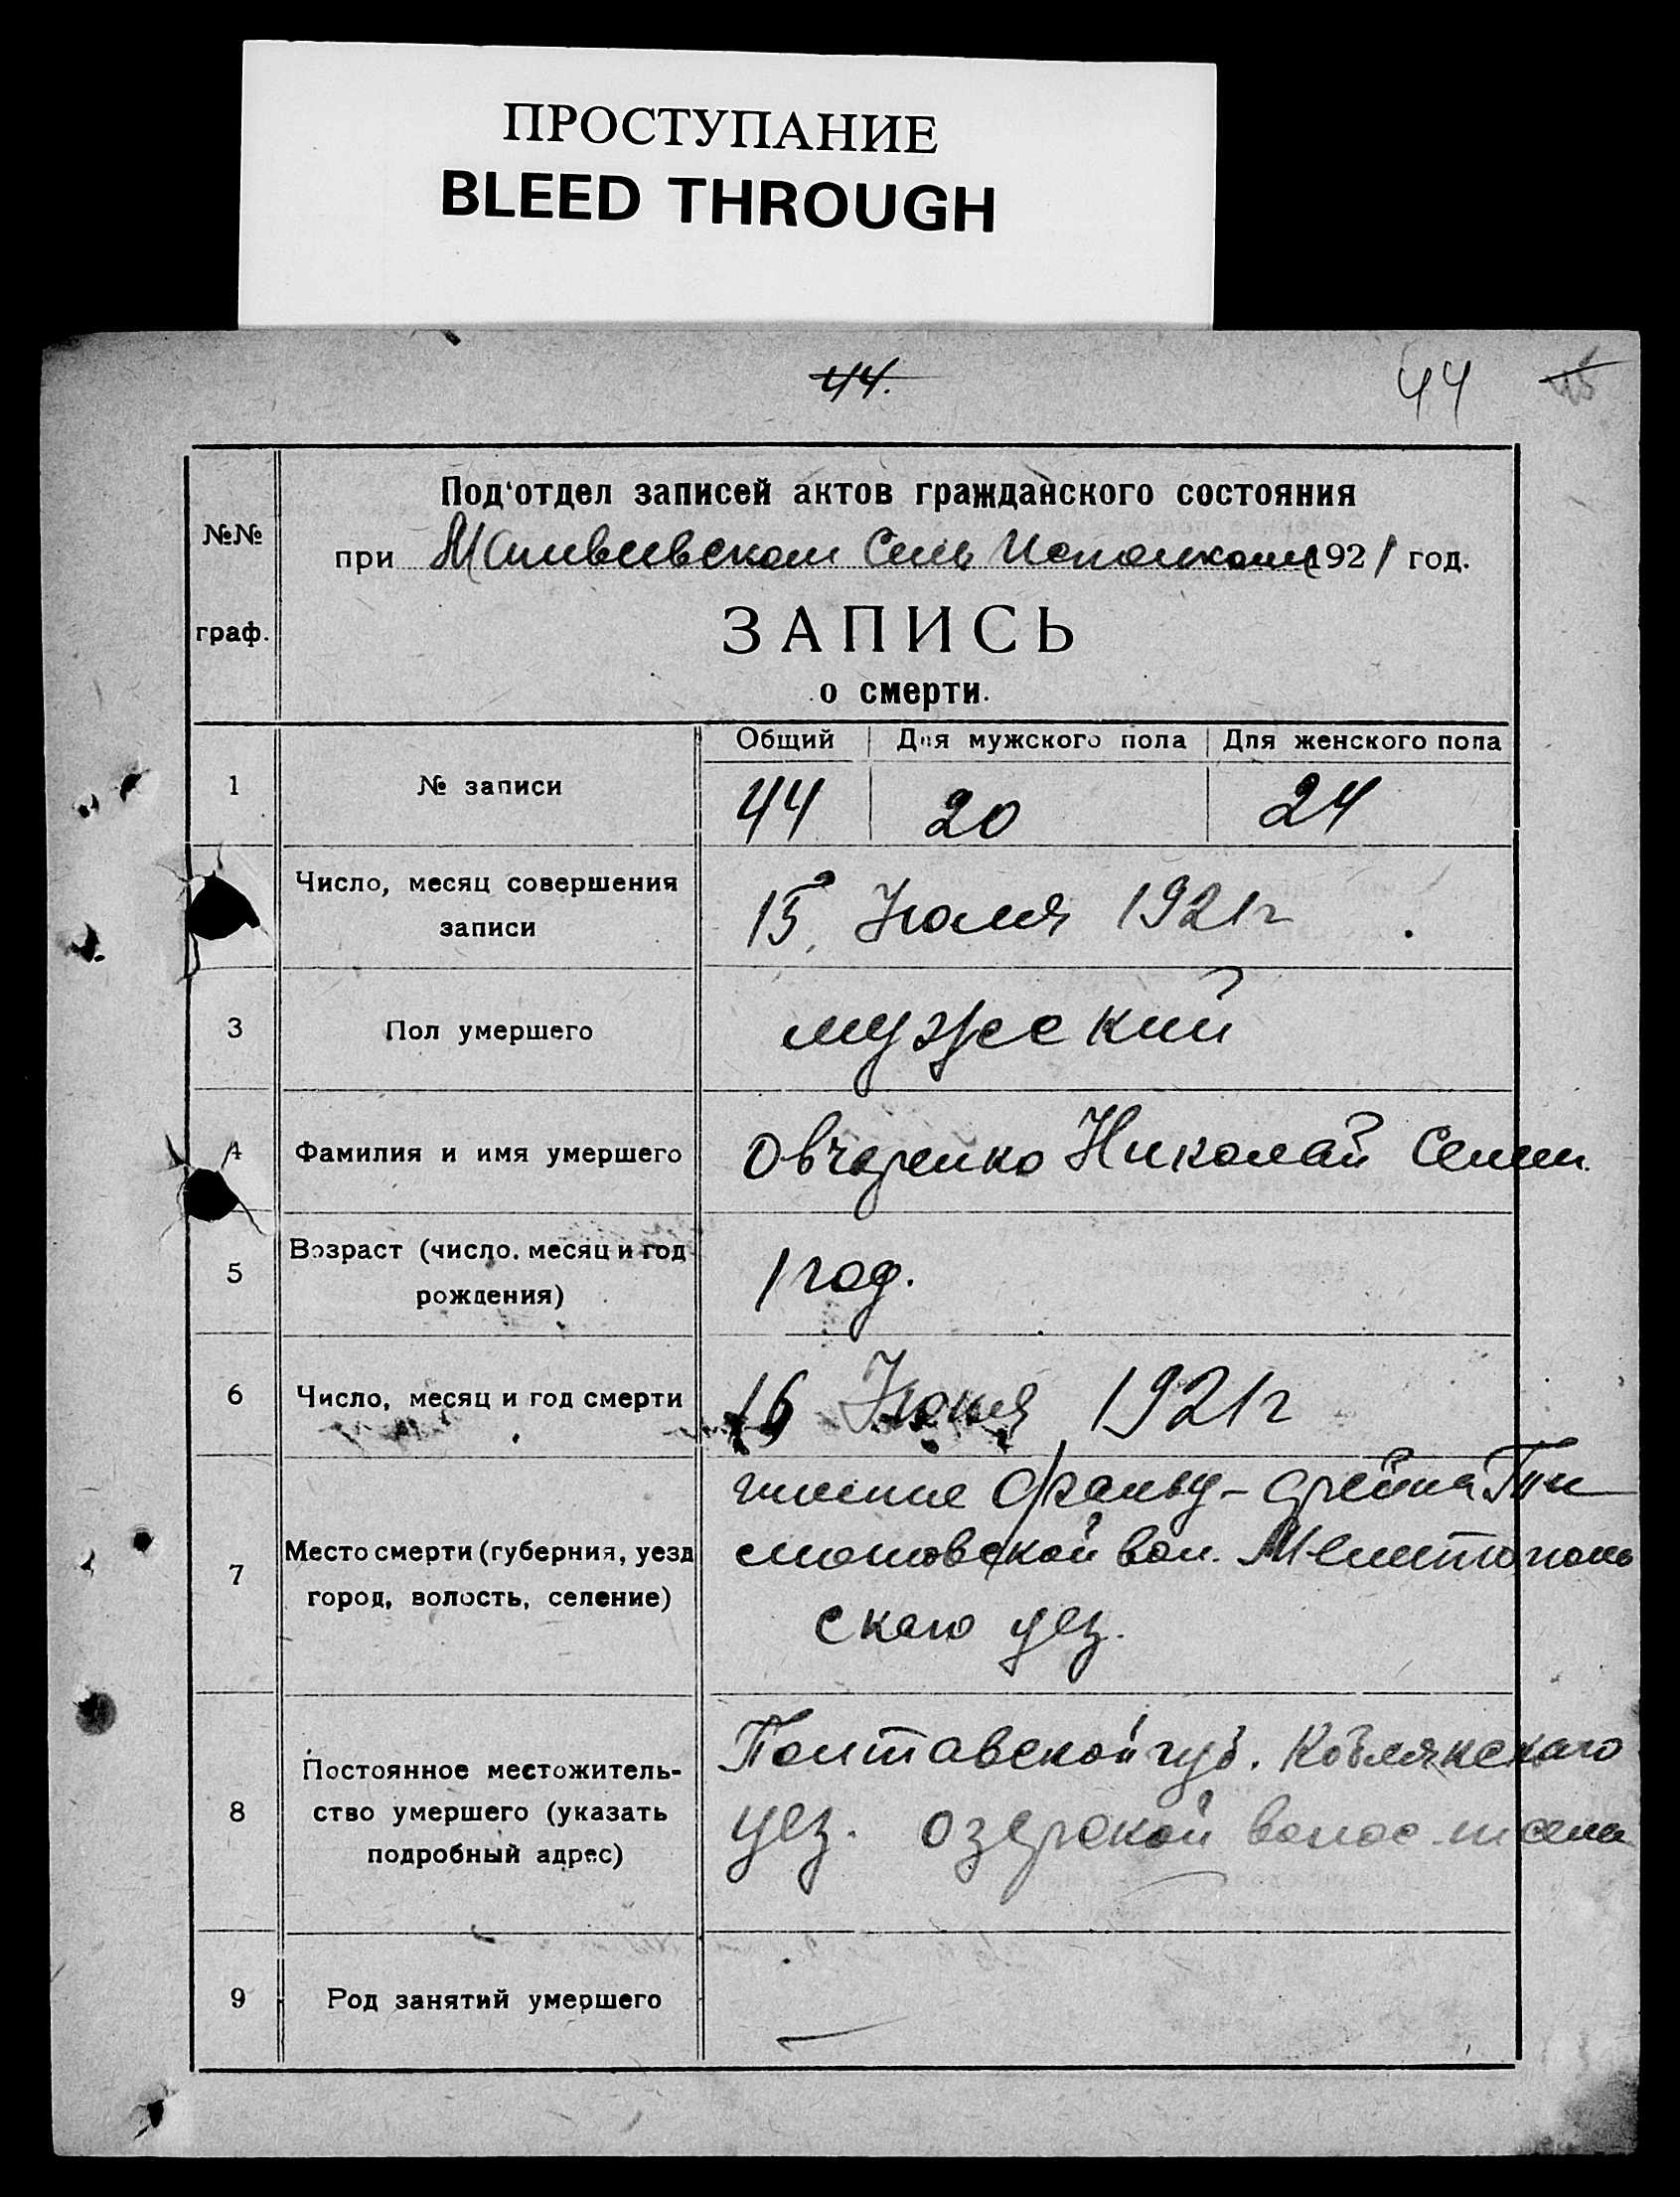 ПРОСТУПАНИЕ
BLEED THROUGH
44.
44
Под'отдел записей актов гражданского состояния
№№
при Сель Исполкоме 1921 год.
граф.
ЗАПИСЬ
о смерти.
Общий Для мужского пола Для женского пола
1 № записи 44 20 24
Число, месяц совершения
записи
15 Июля 1921г
3 Пол умершего мужеский
4 Фамилия и имя умершего Овчаренко Николай Семен.
5 Возраст (число, месяц и год
рождения)
1 год.
6 Число, месяц и год смерти 16 Июня 1921г
7 Место смерти (губерния, уезд
город, волость, селение)
имение
вол. Мелитополь
скаго уез.
8 Постоянное местожитель-
ство умершего (указать
подробный адрес)
Полтавской губ. Кобелякскаго
уез. озерской волос
9 Род занятий умершего